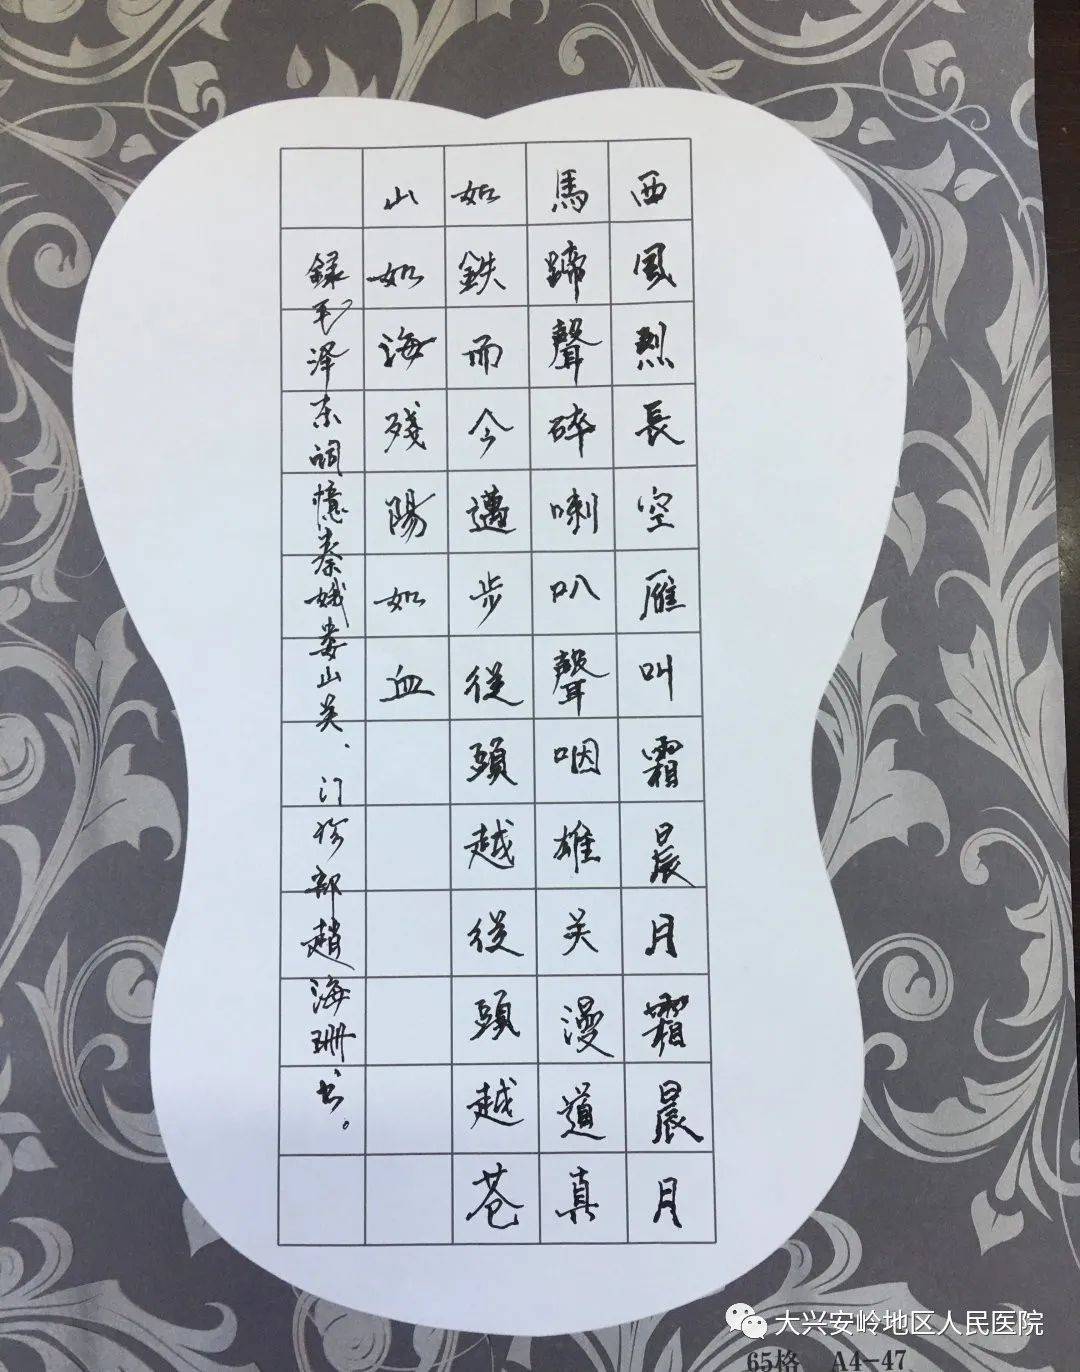 西風烈長空雁叫霜晨月霜晨月
馬蹄聲碎喇叭聲咽雄关漫道真
如鉄而今邁步從頭越從頭越苍
山如海殘陽如血
録毛泽东词憶秦娥娄山关、门诊部趙海珊书。
大兴安岭地区人民医院
65格 A4-47